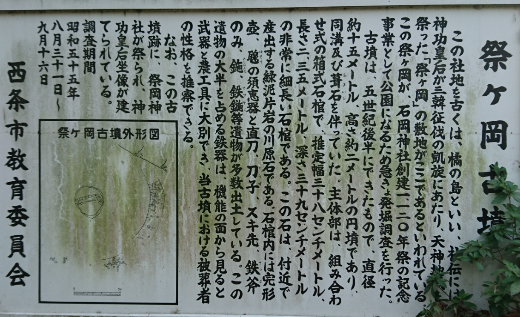 祭ヶ岡古墳
この社地を古くは、橘の島といい、社伝には
神功皇后が三韓征伐の凱旋にあたり、天神地
祭った「祭ヶ岡」の敷地がここであるといわれている
この祭ヶ岡が、石岡神社創建一一二〇年祭の記念
事業として公園になるため急きょ発掘調査を行った。
古墳は、五世紀後半にできたもので、直径
約十五メートル、高さ約二メートルの円墳であり、
周溝及び葺石を伴っていた。主体部は、組み合わ
せ式の箱式石棺で、推定幅三十八センチメートル、
長さ二・三五メートル、深さ三十九センチメートル
の非常に細長い石棺である。この石は、付近で
産出する緑泥片岩の川原石である。石棺内には完形
壺、𤭯の須恵器と直刀、刀子、スキ先、鉄斧
のみ、鉇、鉄鏃等遺物が多数出土している。この
遺物の大半を占める鉄器は、機能の面から見ると
武器と農工具に大別でき、当古墳における被葬者
の性格を推察できうる。
なお、この古
墳跡に、祭岡神
社が祭られ、神
功皇后坐像が建
てられている。
調査期間
昭和五十五年
八月三十一日～
九月十六日
祭ヶ岡古墳外形図
西条市教育委員会